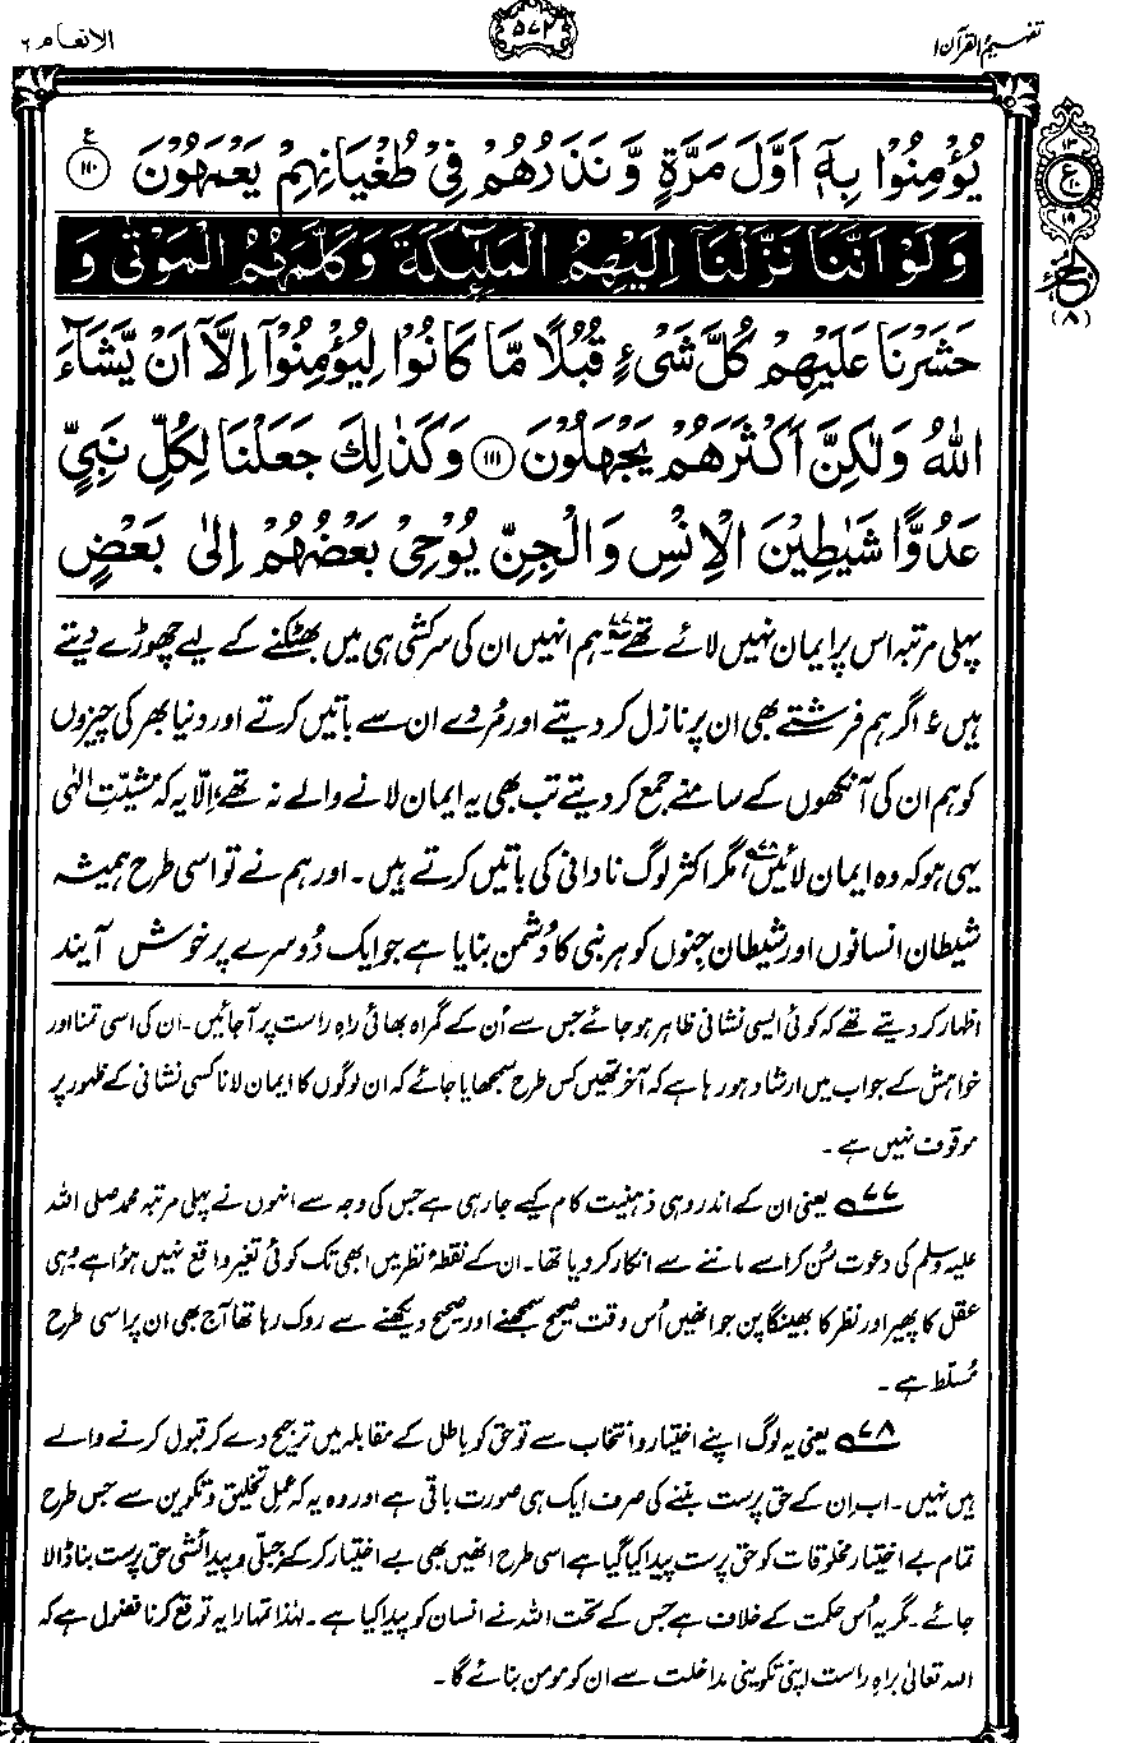 تفہیم القرآن ۱
۵۷۲
الانعام ۶
يُؤْمِنُوْا بِهٖٓ اَوَّلَ مَرَّةٍ وَّ نَذَرُهُمْ فِيْ طُغْيَانِهِمْ يَعْمَهُوْنَ ﴿۱۱۰﴾ ع
۱۳
ع
۱۹
الجزء
(۸)
وَلَوْ اَنَّنَا نَزَّلْنَآ اِلَيْهِمُ الْمَلٰٓئِكَةَ وَكَلَّمَهُمُ الْمَوْتٰى وَ
حَشَرْنَا عَلَيْهِمْ كُلَّ شَيْءٍ قُبُلًا مَّا كَانُوْا لِيُؤْمِنُوْٓا اِلَّآ اَنْ يَّشَآءَ
اللّٰهُ وَلٰكِنَّ اَكْثَرَهُمْ يَجْهَلُوْنَ ﴿۱۱۱﴾ وَكَذٰلِكَ جَعَلْنَا لِكُلِّ نَبِيٍّ
عَدُوًّا شَيٰطِيْنَ الْاِنْسِ وَالْجِنِّ يُوْحِيْ بَعْضُهُمْ اِلٰى بَعْضٍ
پہلی مرتبہ اس پر ایمان نہیں لائے تھے۷۷۔ ہم انہیں ان کی سرکشی ہی میں بھٹکنے کے لیے چھوڑے دیتے
ہیں ع اگر ہم فرشتے بھی ان پر نازل کر دیتے اور مُردے ان سے باتیں کرتے اور دنیا بھر کی چیزوں
کو ہم ان کی آنکھوں کے سامنے جمع کر دیتے تب بھی یہ ایمان لانے والے نہ تھے، اِلّا یہ کہ مشیّتِ الٰہی
یہی ہو کہ وہ ایمان لائیں۷۸، مگر اکثر لوگ نادانی کی باتیں کرتے ہیں۔ اور ہم نے تو اسی طرح ہمیشہ
شیطان انسانوں اور شیطان جِنوں کو ہر نبی کا دُشمن بنایا ہے جو ایک دُوسرے پر خوش آیند
اظہار کر دیتے تھے کہ کوئی ایسی نشانی ظاہر ہو جائے جس سے اُن کے گمراہ بھائی راہِ راست پر آجائیں۔ ان کی اسی تمنا اور
خواہش کے جواب میں ارشاد ہو رہا ہے کہ آخر تمھیں کس طرح سمجھایا جائے کہ ان لوگوں کا ایمان لانا کسی نشانی کے ظہور پر
موقوف نہیں ہے۔
۷۷ یعنی ان کے اندر وہی ذہنیت کام کیے جا رہی ہے جس کی وجہ سے انہوں نے پہلی مرتبہ محمد صلی اللہ
علیہ وسلم کی دعوت سُن کر اسے ماننے سے انکار کر دیا تھا۔ ان کے نقطۂ نظر میں ابھی تک کوئی تغیر واقع نہیں ہؤا ہے وُہی
عقل کا پھیر اور نظر کا بھینگا پن جو انھیں اُس وقت صحیح سمجھنے اور صحیح دیکھنے سے روک رہا تھا آج بھی ان پر اسی طرح
مُسلّط ہے۔
۷۸ یعنی یہ لوگ اپنے اختیار و انتخاب سے تو حق کو باطل کے مقابلہ میں ترجیح دے کر قبول کرنے والے
ہیں نہیں۔ اب اِن کے حق پرست بننے کی صرف ایک ہی صورت باقی ہے اور وہ یہ کہ عملِ تخلیق و تکوین سے جس طرح
تمام بے اختیار مخلوقات کو حق پرست پیدا کیا گیا ہے اسی طرح انھیں بھی بے اختیار کر کے جبلّی و پیدائشی حق پرست بنا ڈالا
جائے۔ مگر یہ اُس حکمت کے خلاف ہے جس کے تحت اللہ نے انسان کو پیدا کیا ہے۔ لہٰذا تمہارا یہ توقع کرنا فضول ہے کہ
اللہ تعالیٰ براہِ راست اپنی تکوینی مداخلت سے ان کو مومن بنائے گا۔